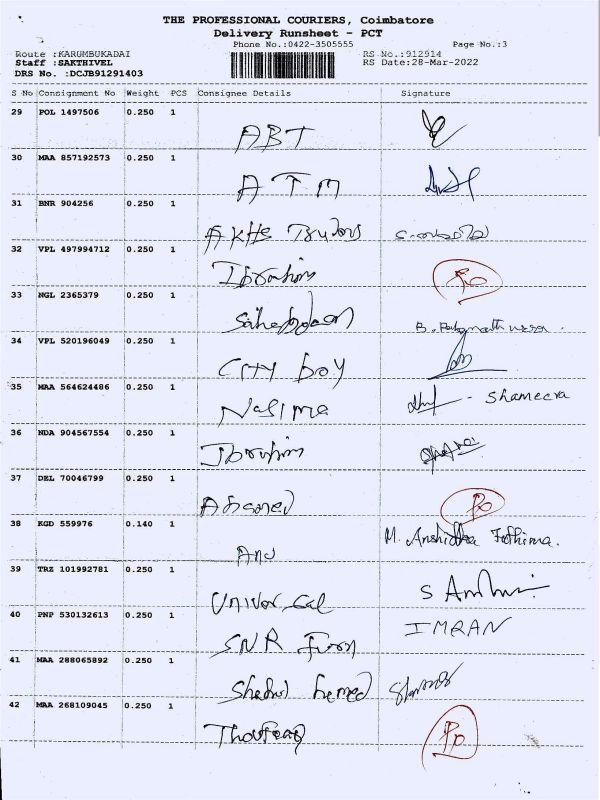 THE PROFESSIONAL COURIERS, Coimbatore
Delivery Runsheet - PCT
Phone No.:0422-3505555 Page No.:3
Route :KARUMBUKADAI RS No.:912914
Staff :SAKTHIVEL RS Date:28-Mar-2022
DRS No. :DCJB91291403
S No Consignment No Weight PCS Consignee Details Signature
29 POL 1497506 0.250 1
ABT
30 MAA 857192573 0.250 1
ATM
31 BNR 904256 0.250 1
AKHS
32 VPL 497994712 0.250 1
Ibrahim
33 NGL 2365379 0.250 1
34 VPL 520196049 0.250 1
City boy
35 MAA 564624486 0.250 1 Shameera
Nasima
36 NDA 904567554 0.250 1
Ibrahim
37 DEL 70046799 0.250 1
Ahamed
38 KGD 559976 0.140 1 M. Anshidha Fathima.
39 TRZ 101992781 0.250 1
Univer sal
40 PNP 530132613 0.250 1 IMRAN
SNR
41 MAA 288065892 0.250 1
42 MAA 268109045 0.250 1